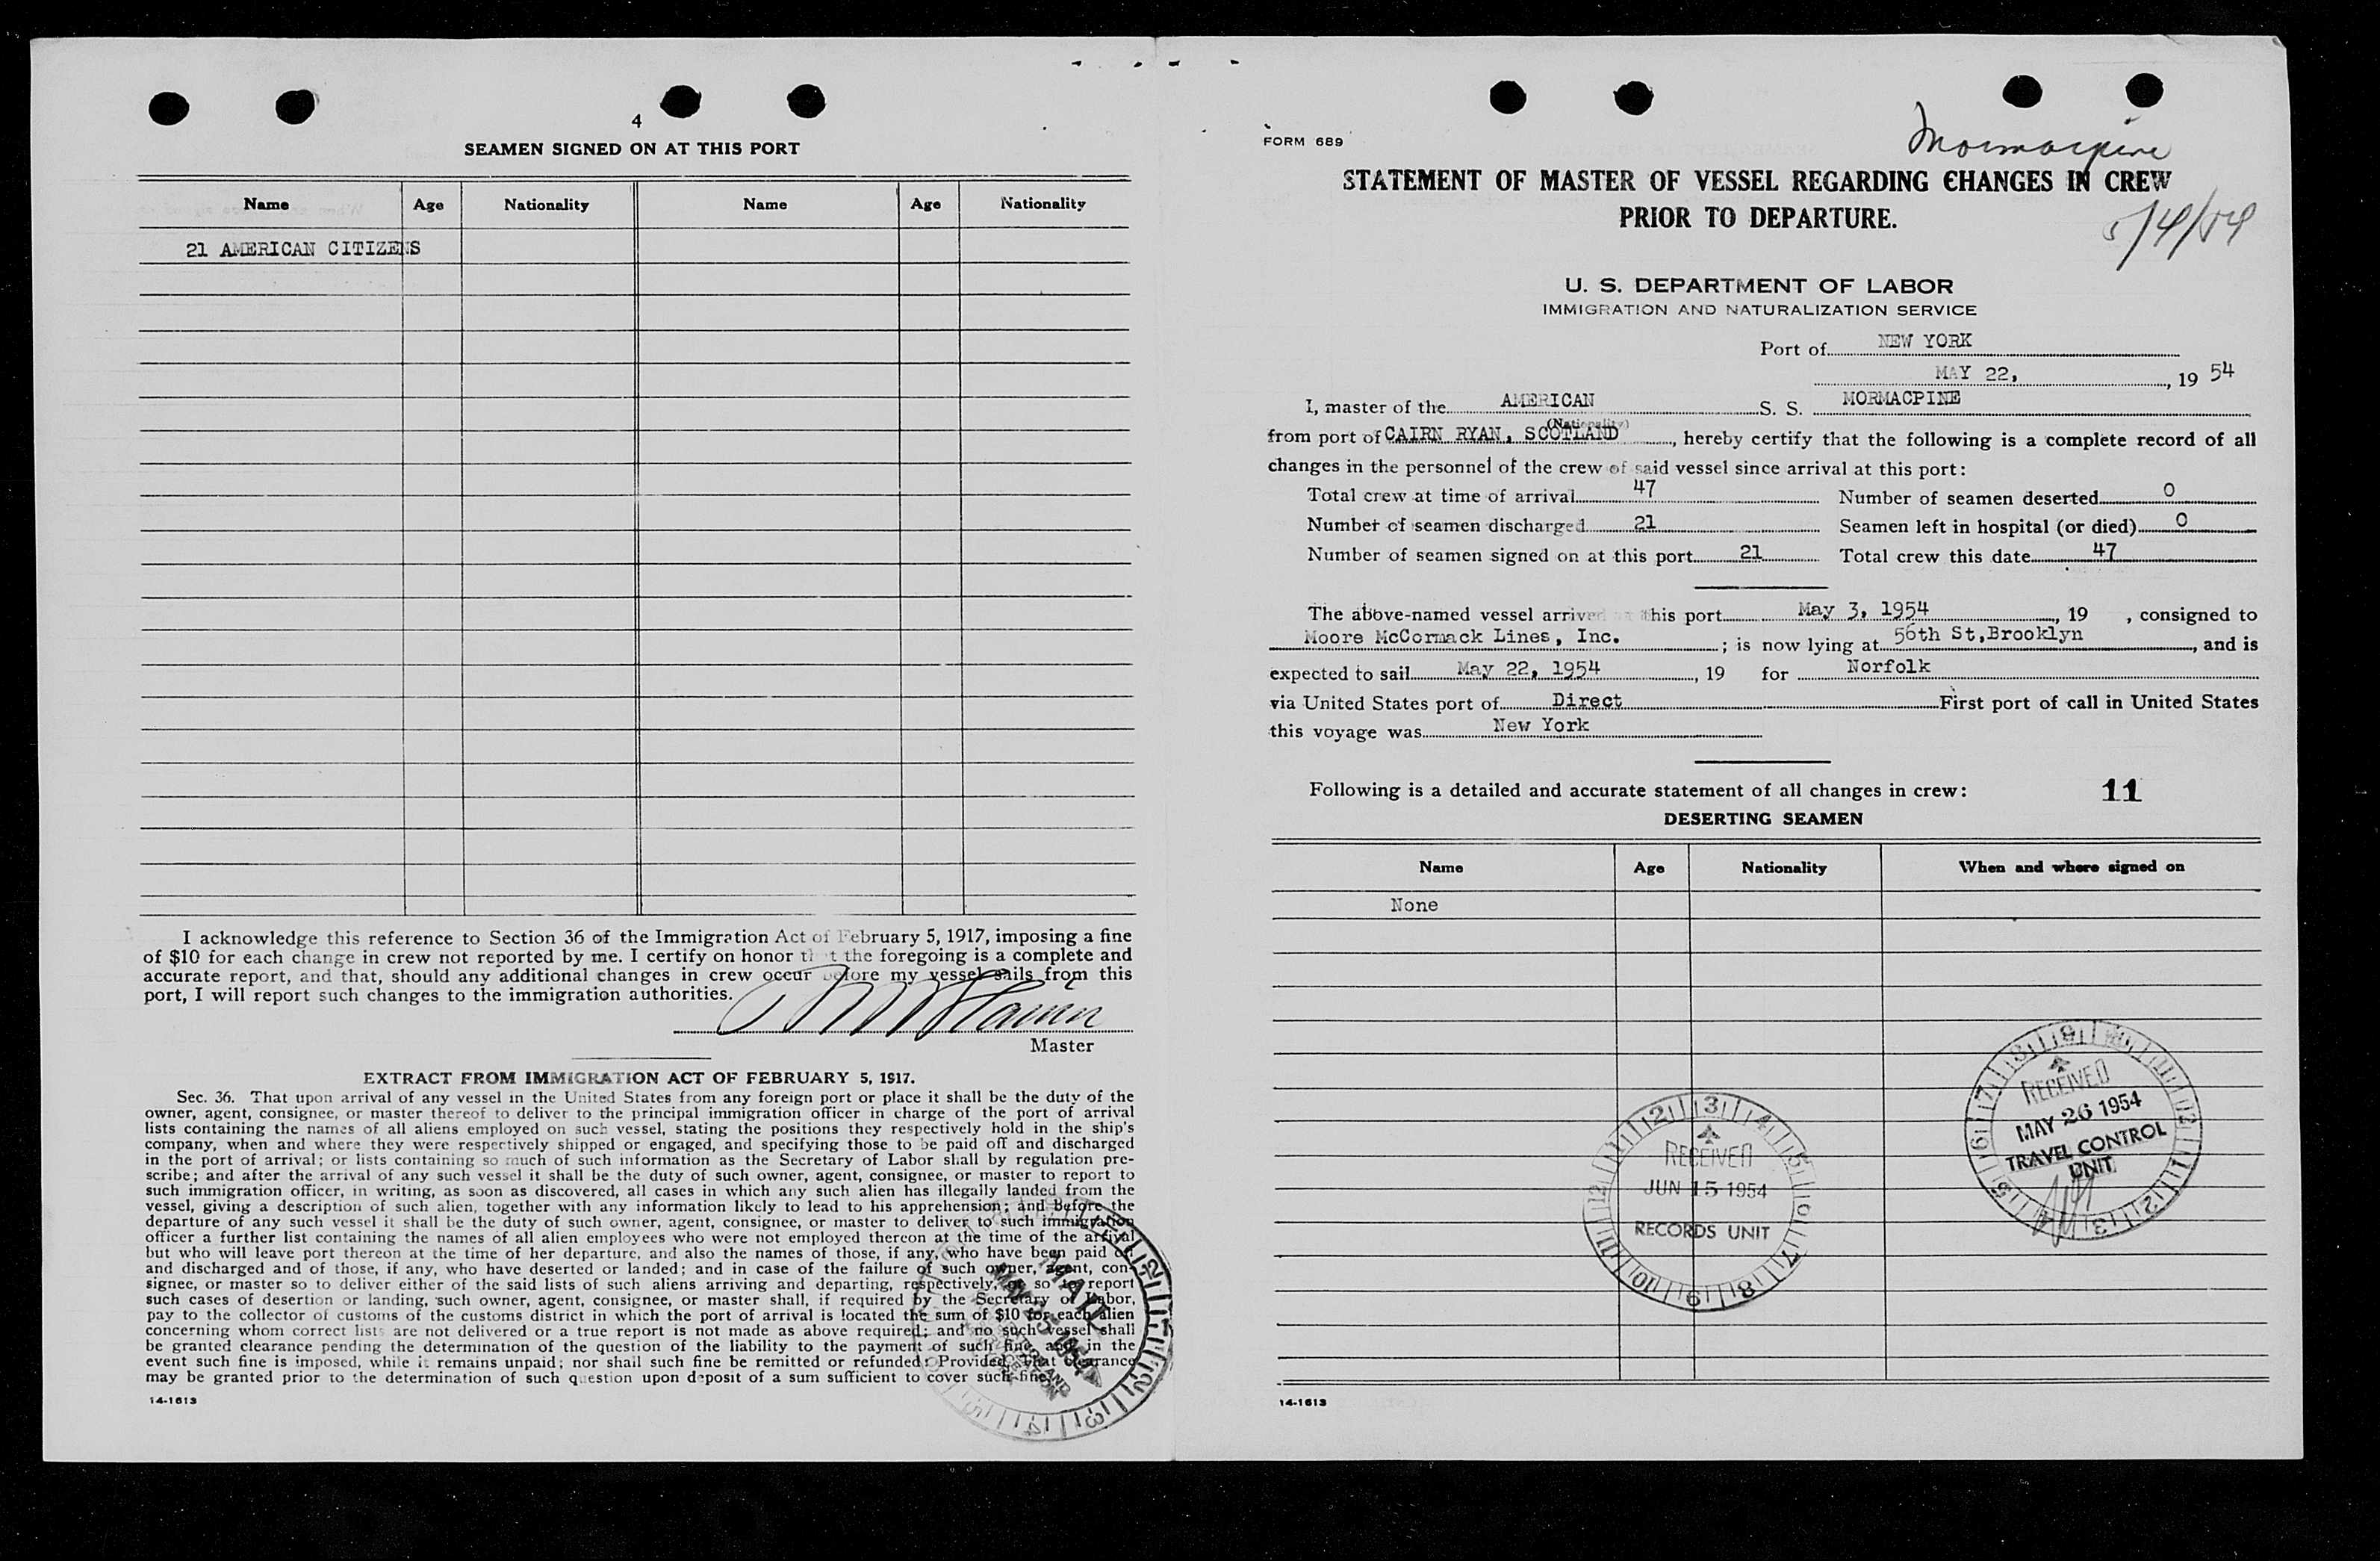 4
SEAMEN SIGNED ON AT THIS PORT
Name Age Nationality Name Age Nationality
21 AMERICAN CITIZENS
I acknowledge this reference to Section 36 of the Immigration Act of February 5, 1917, imposing a fine
of $10 for each change in crew not reported by me. I certify on honor that the foregoing is a complete and
accurate report, and that, should any additional changes in crew occur before my vessel sails from this
port, I will report such changes to the immigration authorities.
Master
EXTRACT FROM IMMIGRATION ACT OF FEBRUARY 5, 1917.
Sec. 36. That upon arrival of any vessel in the United States from any foreign port or place it shall be the duty of the
owner, agent, consignee, or master thereof to deliver to the principal immigration officer in charge of the port of arrival
lists containing the names of all aliens employed on such vessel, stating the positions they respectively hold in the ship's
company, when and where they were respectively shipped or engaged, and specifying those to be paid off and discharged
in the port of arrival; or lists containing so much of such information as the Secretary of Labor shall by regulation pre-
scribe; and after the arrival of any such vessel it shall be the duty of such owner, agent, consignee, or master to report to
such immigration officer, in writing, as soon as discovered, all cases in which any such alien has illegally landed from the
vessel, giving a description of such alien, together with any information likely to lead to his apprehension; and before the
departure of any such vessel it shall be the duty of such owner, agent, consignee, or master to deliver to such immigration
officer a further list containing the names of all alien employees who were not employed thereon at the time of the arrival
but who will leave port thereon at the time of her departure, and also the names of those, if any, who have been paid off
and discharged and of those, if any, who have deserted or landed; and in case of the failure of such owner, agent, con-
signee, or master so to deliver either of the said lists of such aliens arriving and departing, respectively, or so to report
such cases of desertion or landing, such owner, agent, consignee, or master shall, if required by the Secretary of Labor,
pay to the collector of customs of the customs district in which the port of arrival is located the sum of $10 for each alien
concerning whom correct lists are not delivered or a true report is not made as above required; and no such vessel shall
be granted clearance pending the determination of the question of the liability to the payment of such fine, and in the
event such fine is imposed, while it remains unpaid; nor shall such fine be remitted or refunded: Provided, That clearance
may be granted prior to the determination of such question upon deposit of a sum sufficient to cover such fine.
14-1613
MAIL
FORM 689
Mormacpine
STATEMENT OF MASTER OF VESSEL REGARDING CHANGES IN CREW
PRIOR TO DEPARTURE.
5/4/54
U. S. DEPARTMENT OF LABOR
IMMIGRATION AND NATURALIZATION SERVICE
Port of NEW YORK
MAY 22, , 19 54
I, master of the AMERICAN S. S. MORMACPINE
(Nationality)
from port of CAIRN RYAN, SCOTLAND , hereby certify that the following is a complete record of all
changes in the personnel of the crew of said vessel since arrival at this port:
Total crew at time of arrival 47 Number of seamen deserted 0
Number of seamen discharged 21 Seamen left in hospital (or died) 0
Number of seamen signed on at this port 21 Total crew this date 47
The above-named vessel arrived at this port May 3, 1954 , 19 , consigned to
Moore McCormack Lines, Inc. ; is now lying at 56th St,Brooklyn , and is
expected to sail May 22, 1954 , 19 for Norfolk
via United States port of Direct First port of call in United States
this voyage was New York
Following is a detailed and accurate statement of all changes in crew: 11
DESERTING SEAMEN
Name Age Nationality When and where signed on
None
RECEIVED
MAY 26 1954
TRAVEL CONTROL
UNIT
RECEIVED
JUN 15 1954
RECORDS UNIT
14-1613